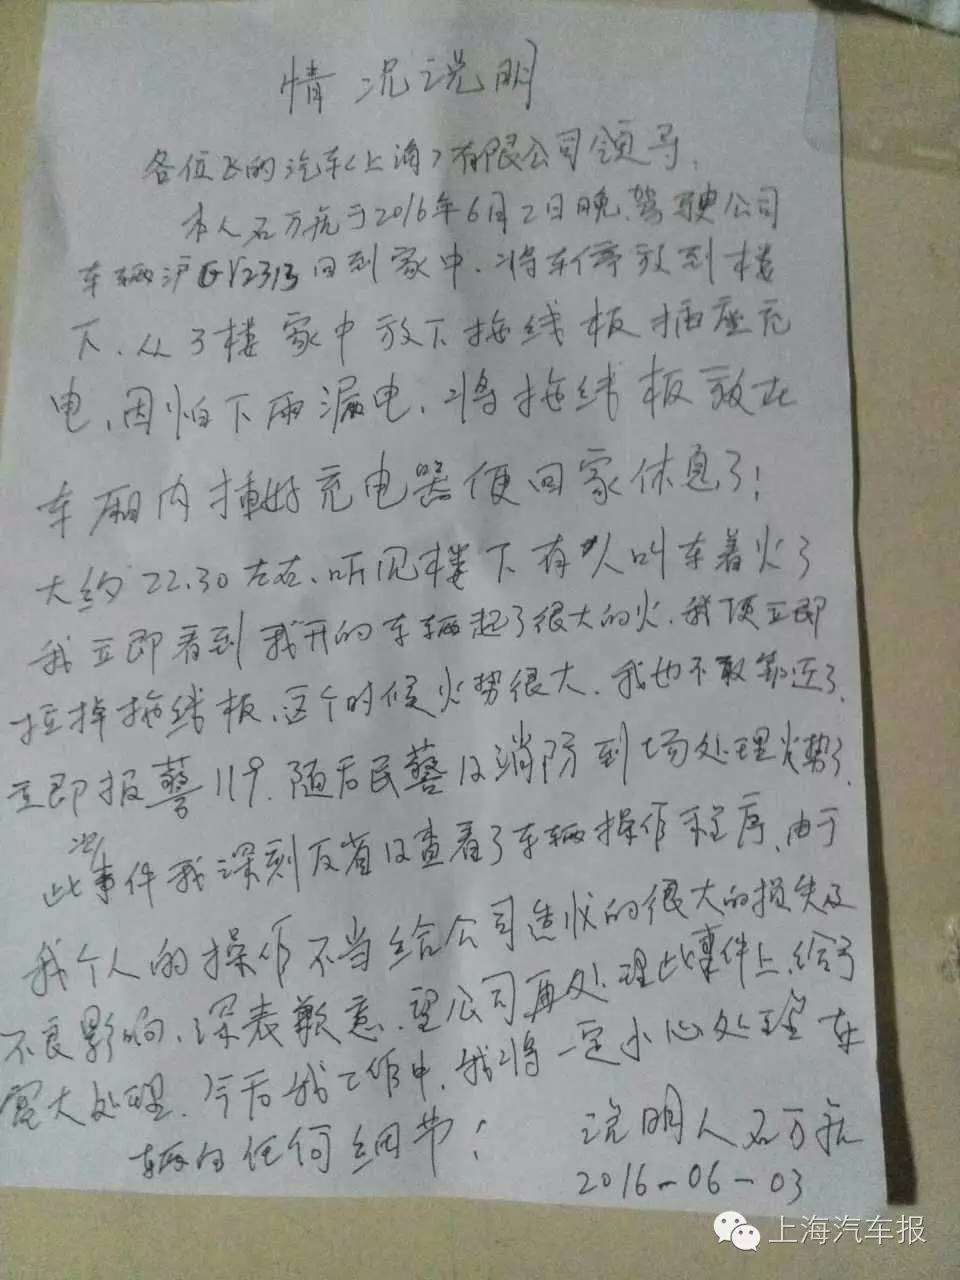 情况说明
各位飞的汽车(上海)有限公司领导,
本人石万航于2016年6月2日晚,驾驶公司
车辆沪GY2313回到家中.将车停放到楼
下、从3楼家中放下拖线板插座充
电,因怕下雨漏电,将拖线板放在
车厢内插好充电器便回家休息了!
大约22.30左右,听见楼下有人叫车着火了
我立即看到我开的车辆起了很大的火.我便立即
拉掉拖线板,这个时候火势很大.我也不敢靠近了.
立即报警119.随后民警及消防到场处理火势了.
此事件我深刻反省及查看了车辆操作程序,由于
我个人的操作不当给公司造成的很大的损失及
不良影响,深表歉意.望公司再处理此事件上,给予
宽大处理.今后我工作中,我将一定小心处理车
辆的任何细节!
说明人石万航
2016-06-03
上海汽车报